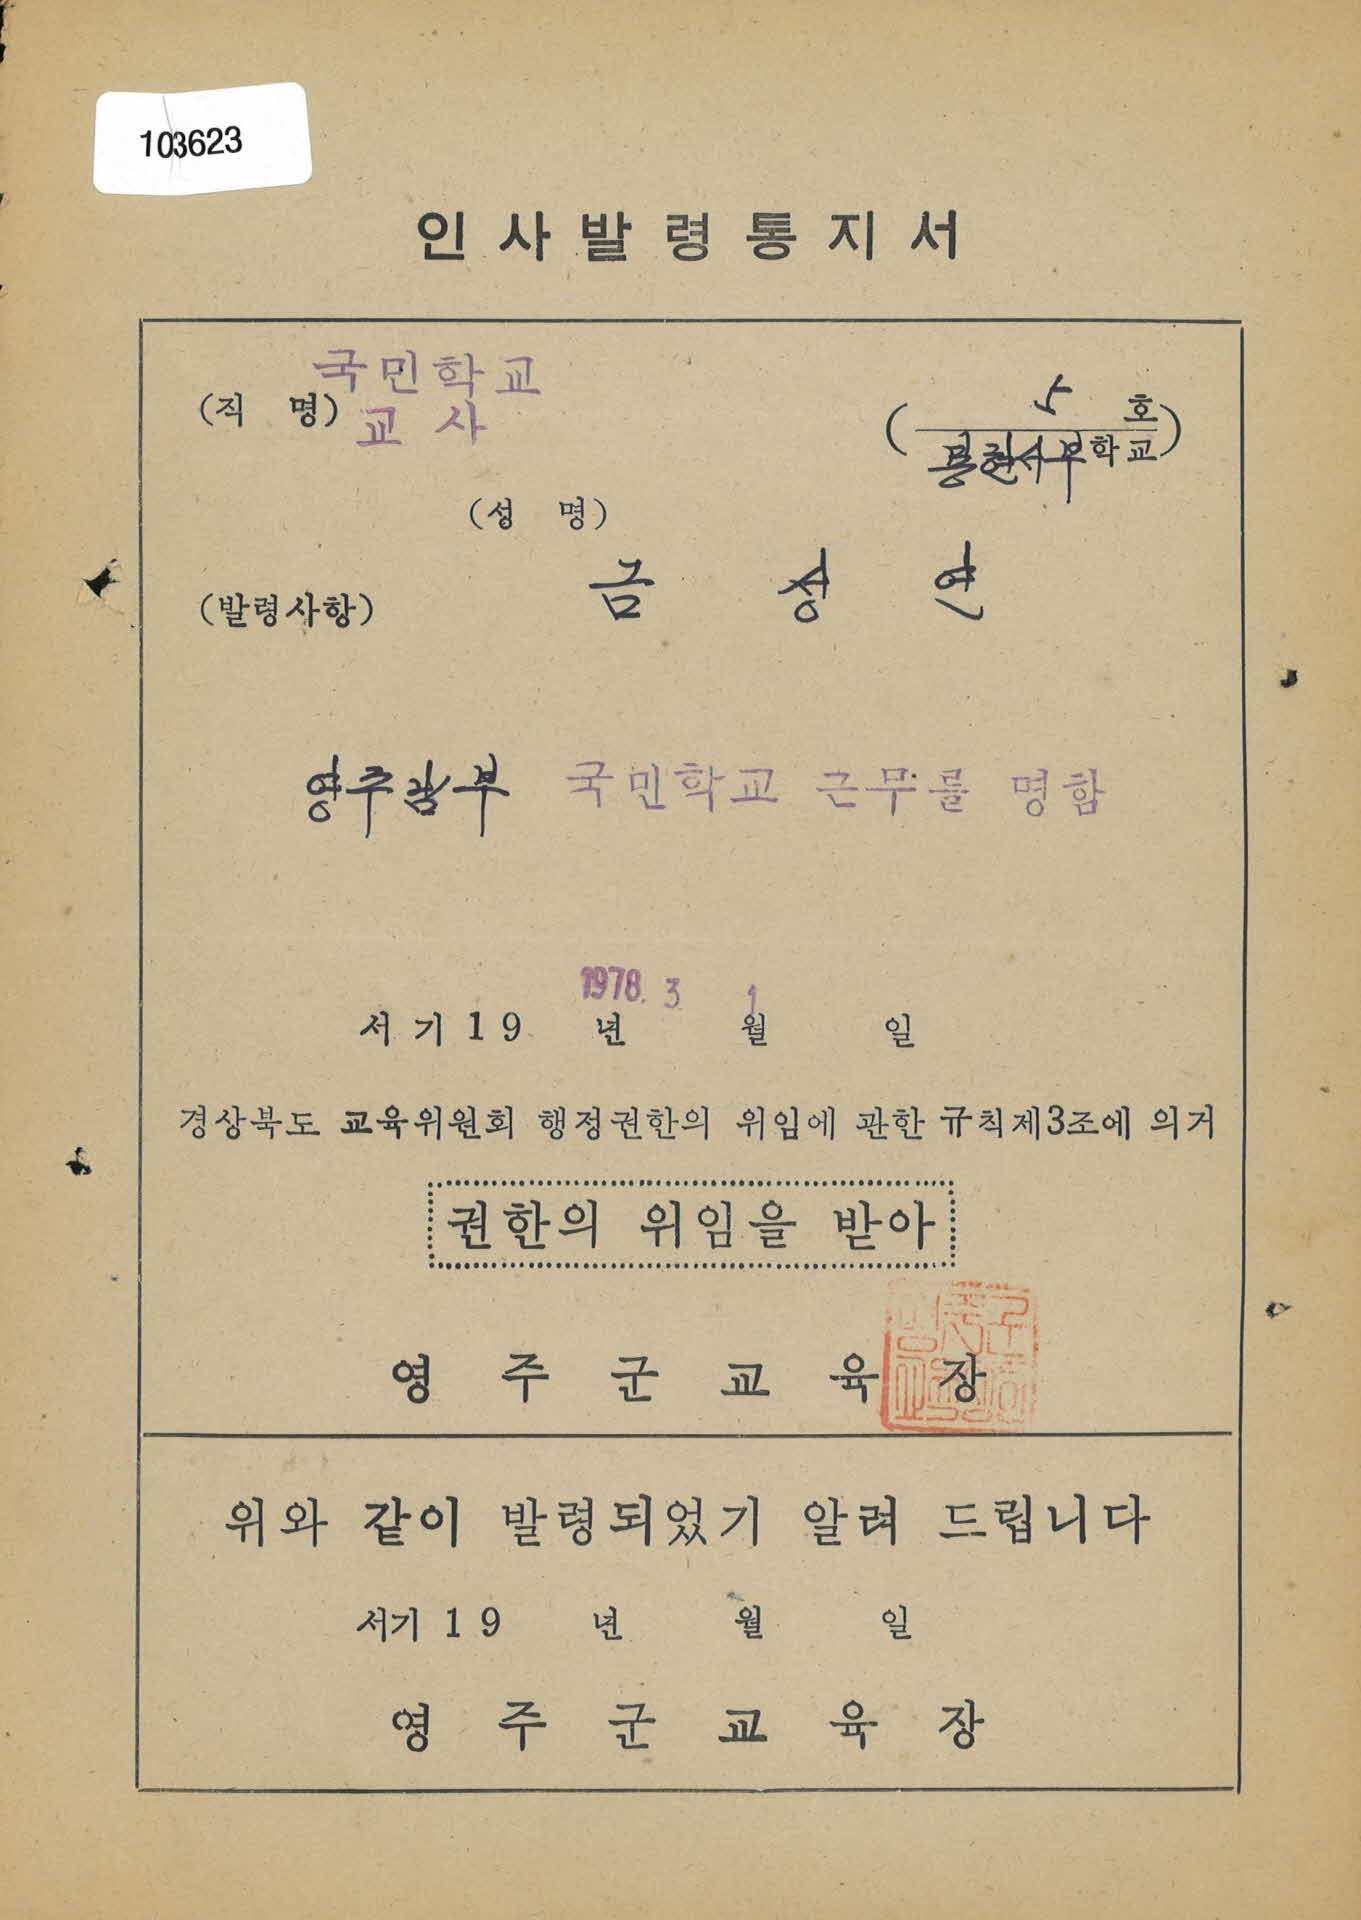 103623
인사발령통지서
국민학교
(직 명) 교사
( 5 호
봉현서부학교)
(성 명)
금 성 연
(발령사항)
영주남부 국민학교 근무를 명함
1978. 3 1
서기 19 년 월 일
경상북도 교육위원회 행정권한의 위임에 관한 규칙제3조에 의거
권한의 위임을 받아
영 주 군 교 육 장
위와 같이 발령되었기 알려 드립니다
서기 19 년 월 일
영 주 군 교 육 장